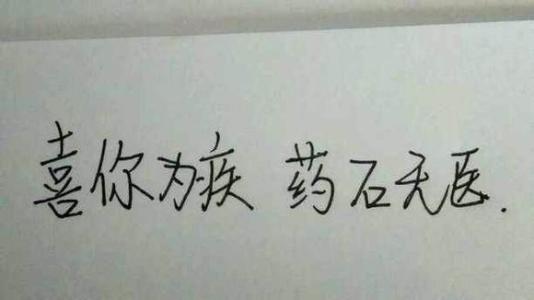 喜你为疾 药石无医.